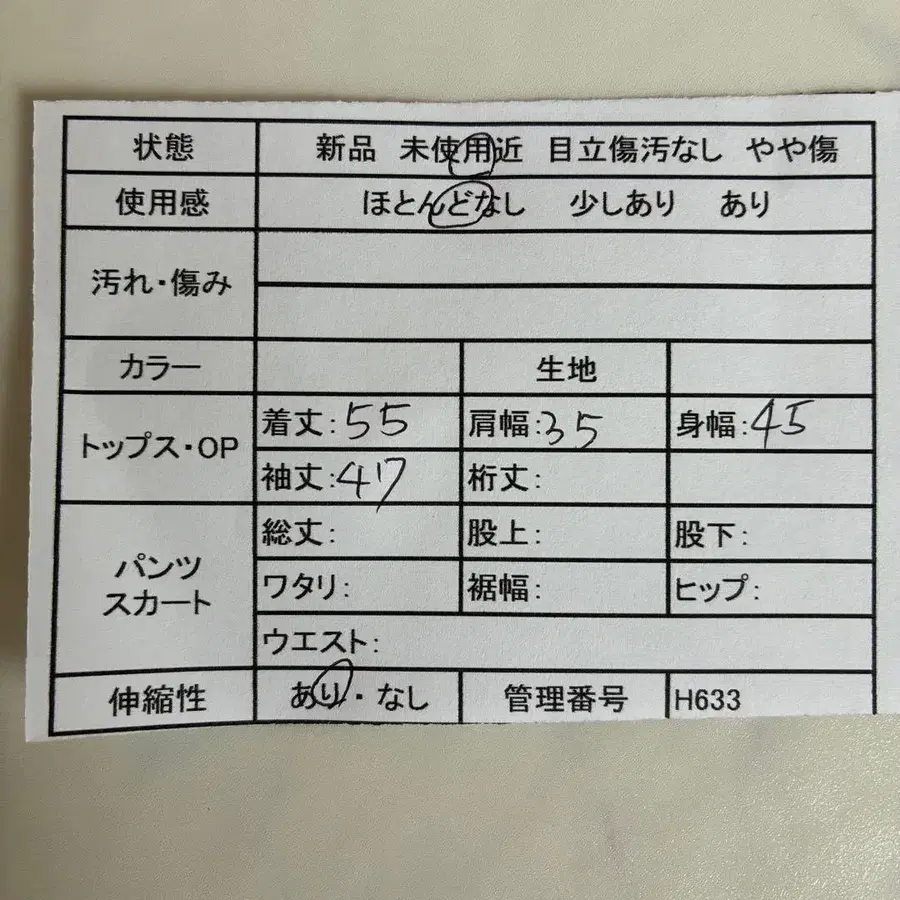 状態 新品 未使用近 目立傷汚なし やや傷
使用感 ほとんどなし 少しあり あり
汚れ・傷み
カラー 生地
トップス・OP
着丈:55 肩幅:35 身幅:45
袖丈:47 裄丈:
パンツ
スカート
総丈: 股上: 股下:
ワタリ: 裾幅: ヒップ:
ウエスト:
伸縮性 あり・なし 管理番号 H633